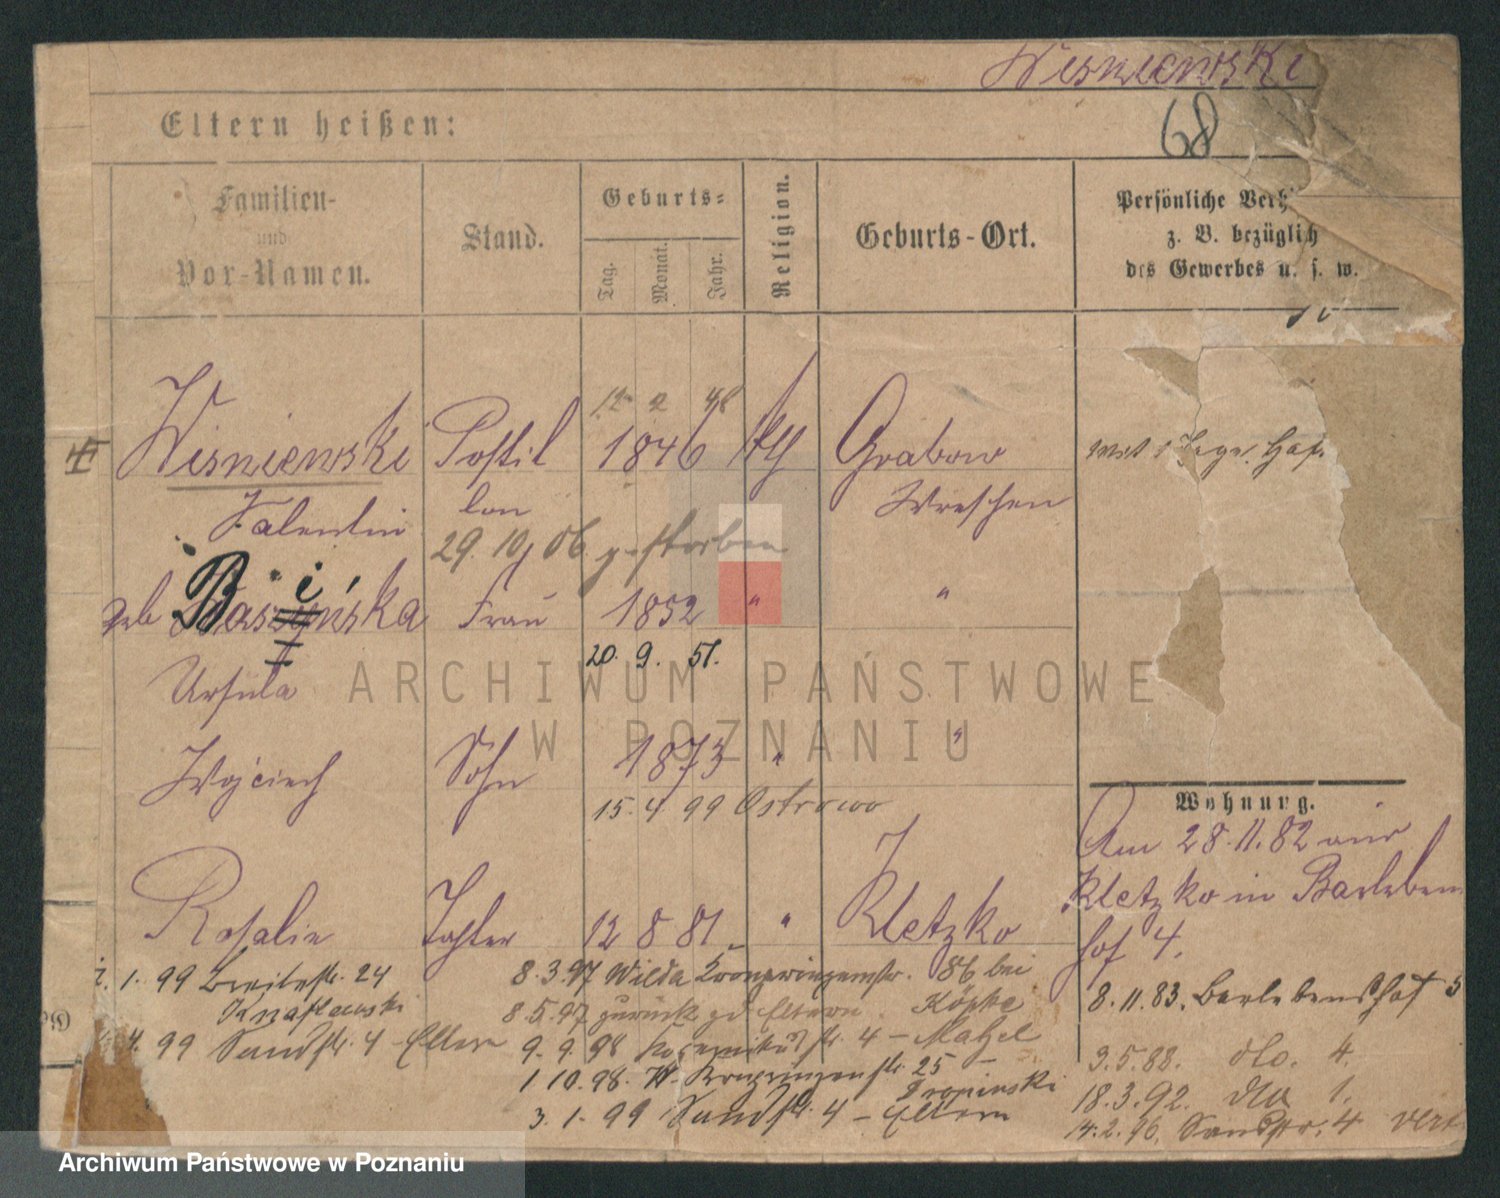 Wisniewski
68
Eltern heißen:
Familien-
und
Vor-Namen.
Stand.
Geburts-
Tag.
Monat.
Jahr.
Religion.
Geburts-Ort.
Persönliche Verh
z. B. bezüglich
des Gewerbes u. s. w.
12 2 48
Wisniewski Postil 1846 Grabow
Valentin lon Wreschen
29. 10. 06 gestorben
geb Frau 1852 " "
20. 9. 51.
Ursula
Wojciech Sohn 1873 " "
15. 4 99 Ostrowo
Wohnung.
Am 28.11.82 aus
Kletzko in Barleben
hof 4.
Rosalie Tochter 12 8 81 " Kletzko
1. 99 Breitestr. 24
8.3.97 Wilda Kronprinzenstr. 86 bei
Köpke
8. 11. 83. Barlebenshof 5
8.5.97 zurück zu Eltern.
4. 99 Sandstr. 4 Eltern
9. 9. 98 str. 4 —
9.5.88. dto. 4.
1 10. 98. W. Kronprinzenstr. 25 —
18.3.92. dto 1.
3. 1. 99 Sandstr. 4 — Eltern
14.2.96. Sandstr. 4
ARCHIWUM PAŃSTWOWE
W POZNANIU
Archiwum Państwowe w Poznaniu